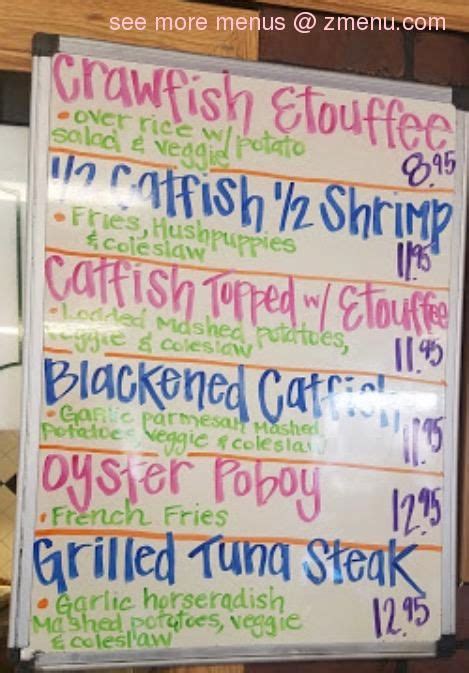 see more menus @ zmenu.com
Crawfish Etouffee
• over rice w/ potato
salad & veggie
8.95
1/2 Catfish 1/2 Shrimp
• Fries, Hushpuppies
& coleslaw
11.95
Catfish Topped w/ Etouffee
• Loaded Mashed potatoes,
veggie & coleslaw
11.95
Blackened Catfish
• Garlic parmesan Mashed
Potatoes, veggie & coleslaw
11.95
Oyster Poboy
• French Fries
12.95
Grilled Tuna Steak
• Garlic horseradish
Mashed potatoes, veggie
& coleslaw
12.95